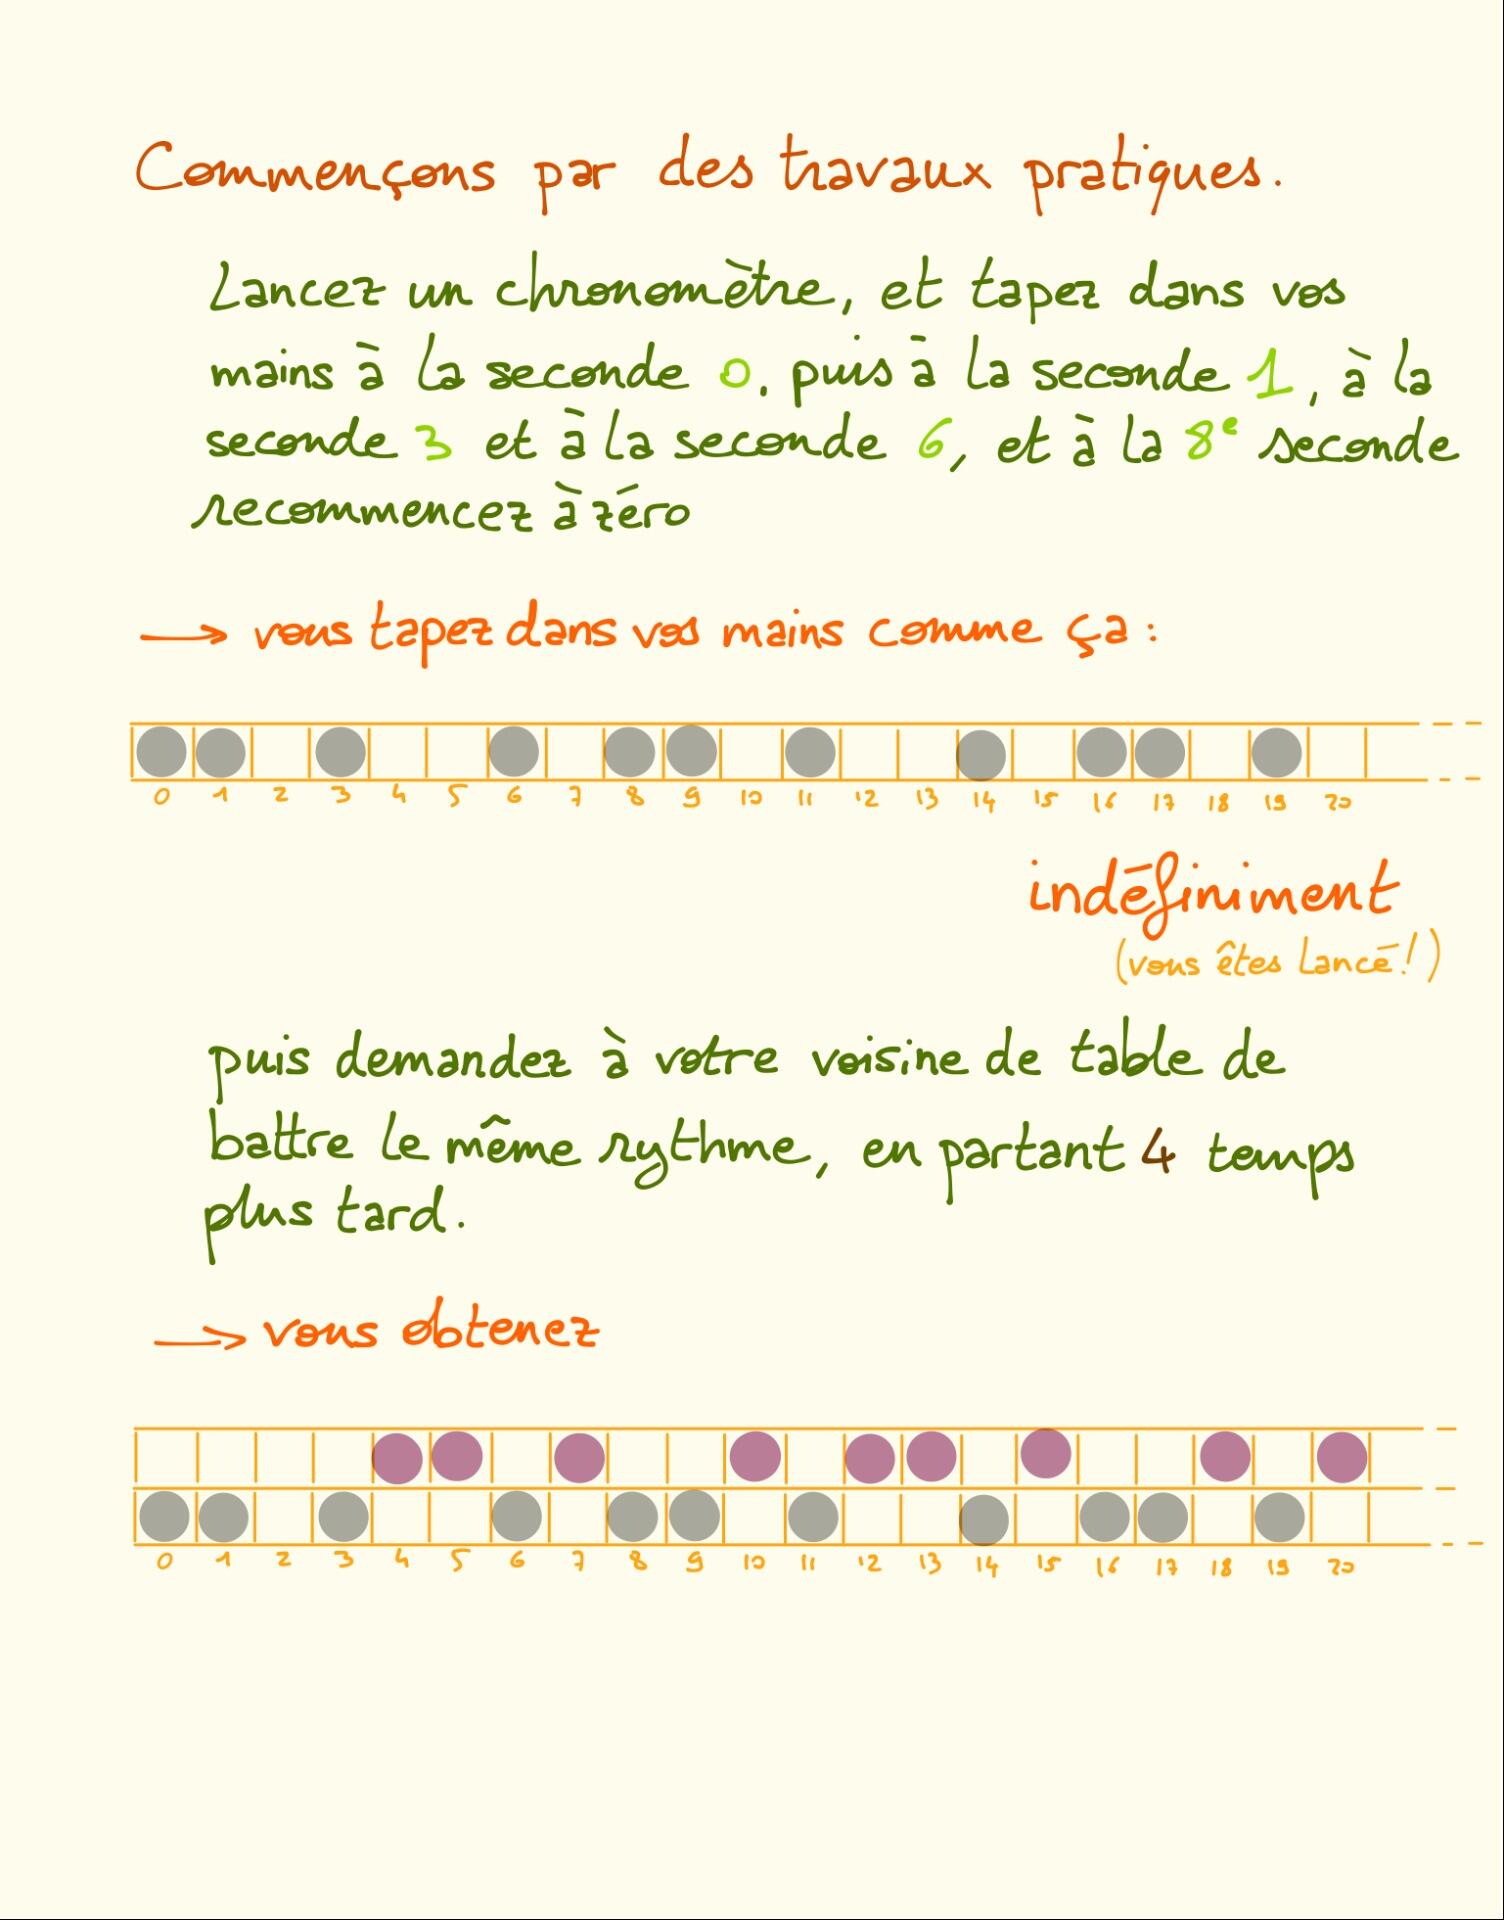 Commençons par des travaux pratiques.
Lancez un chronomètre, et tapez dans vos
mains à la seconde 0, puis à la seconde 1, à la
seconde 3 et à la seconde 6, et à la 8e seconde
recommencez à zéro
→ vous tapez dans vos mains comme ça :
0 1 2 3 4 5 6 7 8 9 10 11 12 13 14 15 16 17 18 19 20
indéfiniment
(vous êtes lancé!)
puis demandez à votre voisine de table de
battre le même rythme, en partant 4 temps
plus tard.
→ vous obtenez
0 1 2 3 4 5 6 7 8 9 10 11 12 13 14 15 16 17 18 19 20